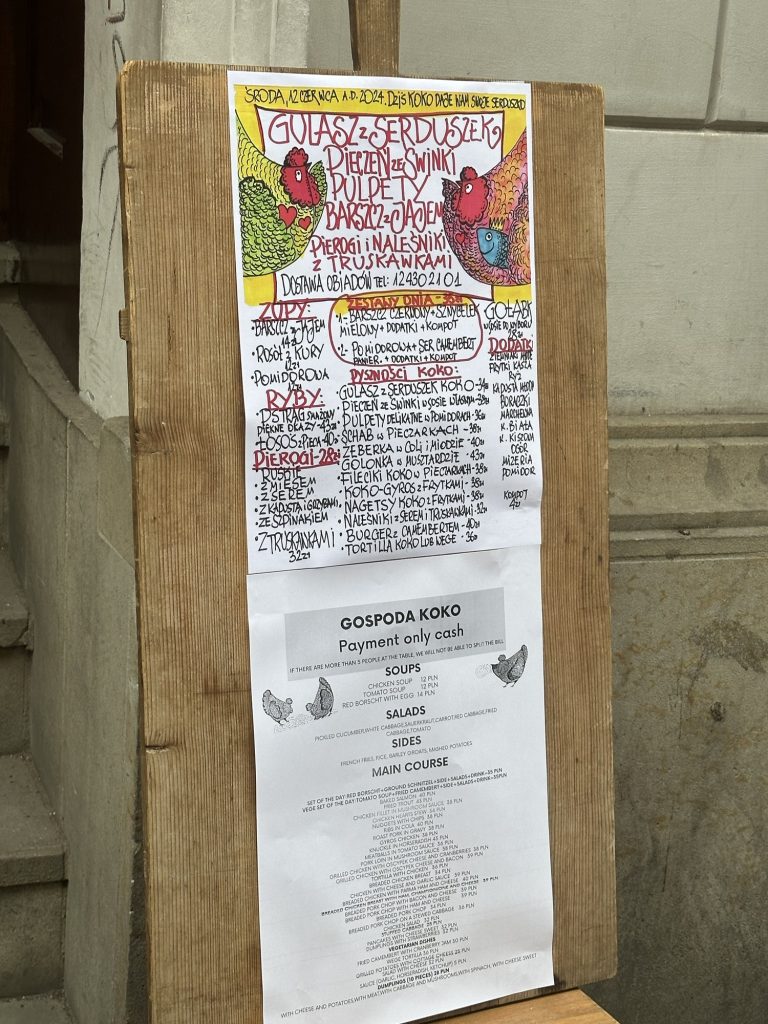 ŚRODA, 12 CZERWCA A.D. 2024. DZIŚ KOKO DAJE NAM SWOJE SERDUSZKO
GULASZ Z SERDUSZEK
PIECZEŃ ZE ŚWINKI
PULPETY
BARSZCZ Z JAJEM
PIEROGI I NALEŚNIKI
Z TRUSKAWKAMI
DOSTAWA OBIADÓW TEL: 12 430 21 01
ZUPY:
• BARSZCZ Z JAJEM
14zł
• ROSÓŁ Z KURY
12zł
• POMIDOROWA
12zł
RYBY:
• PSTRĄG SMAŻONY
PIĘKNE OKAZY - 43zł
• ŁOSOŚ Z PIECA - 40zł
PIEROGI - 28zł
• RUSKIE
• Z MIĘSEM
• Z SEREM
• Z KAPUSTĄ I GRZYBAMI
• ZE SZPINAKIEM
• Z TRUSKAWKAMI
32zł
ZESTAWY DNIA - 35zł
• 1. - BARSZCZ CZERWONY + SZNYCELEK
MIELONY + DODATKI + KOMPOT
• 2. - POMIDOROWA + SER CAMEMBERT
PANIER. + DODATKI + KOMPOT
PYSZNOŚCI KOKO:
• GULASZ Z SERDUSZEK KOKO - 34zł
• PIECZEŃ ZE ŚWINKI W SOSIE WŁASNYM - 38zł
• PULPETY DELIKATNE W POMIDORACH - 36zł
• SCHAB W PIECZARKACH - 38zł
• ŻEBERKA W COLI I MIODZIE - 40zł
• GOLONKA W MUSZTARDZIE - 43zł
• FILECIKI KOKO W PIECZARKACH - 38zł
• KOKO-GYROS Z FRYTKAMI - 38zł
• NAGETSY KOKO Z FRYTKAMI - 38zł
• NALEŚNIKI Z SEREM I TRUSKAWKAMI - 32zł
• BURGER Z CAMEMBERTEM - 40zł
• TORTILLA KOKO LUB WEGE - 36zł
GOŁĄBKI
W SOSIE DO WYBORU
28zł
DODATKI
ZIEMNIAKI
FRYTKI KASZA
RYŻ
KAPUSTA MŁODA
BURACZKI
MARCHEWKA
K. BIAŁA
K. KISZONA
OGÓR
MIZERIA
POMIDOR
KOMPOT
4zł
GOSPODA KOKO
Payment only cash
IF THERE ARE MORE THAN 5 PEOPLE AT THE TABLE, WE WILL NOT BE ABLE TO SPLIT THE BILL
SOUPS
CHICKEN SOUP 12 PLN
TOMATO SOUP 12 PLN
RED BORSCHT WITH EGG 14 PLN
SALADS
PICKLED CUCUMBER,WHITE CABBAGE,SAUERKRAUT,CARROT,RED CABBAGE,FRIED
CABBAGE,TOMATO
SIDES
FRENCH FRIES, RICE, BARLEY GROATS, MASHED POTATOES
MAIN COURSE
SET OF THE DAY:RED BORSCHT+GROUND SCHNITZEL+SIDE+SALADS+DRINK-35 PLN
VEGE SET OF THE DAY:TOMATO SOUP+FRIED CAMEMBERT+SIDE+SALADS+DRINK-35PLN
BAKED SALMON 40 PLN
FRIED TROUT 43 PLN
CHICKEN FILLET IN MUSHROOM SAUCE 38 PLN
CHICKEN HEARTS STEW 34 PLN
NUGGETS WITH CHIPS 38 PLN
RIBS IN COLA 40 PLN
ROAST PORK IN GRAVY 38 PLN
GYROS CHICKEN 38 PLN
KNUCKLE IN HORSERADISH 43 PLN
MEATBALLS IN TOMATO SAUCE 36 PLN
PORK LOIN IN MUSHROOM SAUCE 38 PLN
GRILLED CHICKEN WITH OSCYPEK CHEESE AND CRANBERRIES 38 PLN
GRILLED CHICKEN WITH OSCYPEK CHEESE AND BACON 39 PLN
TORTILLA WITH CHICKEN 36 PLN
BREADED CHICKEN BREAST 34 PLN
CHICKEN WITH CHEESE AND GARLIC SAUCE 39 PLN
BREADED CHICKEN WITH PARMA HAM AND CHEESE 40 PLN
BREADED CHICKEN BREAST WITH HAM, CHAMPIGNONS AND CHEESE 39 PLN
BREADED PORK CHOP WITH BACON AND CHEESE 39 PLN
BREADED PORK CHOP WITH HAM AND CHEESE 39 PLN
BREADED PORK CHOP 34 PLN
BREADED PORK CHOP ON A STEWED CABBAGE 36 PLN
CHICKEN SALAD 32 PLN
STUFFED CABBAGE 28 PLN
PANCAKES WITH CHEESE SWEET 32 PLN
DUMPLINGS WITH STRAWBERRIES 32 PLN
VEGETARIAN DISHES
FRIED CAMEMBERT WITH CRANBERRY JAM 30 PLN
WEGE TORTILLA 36 PLN
GRILLED POTATOES WITH COTTAGE CHEESE 25 PLN
SALAD WITH CHEESE 32 PLN
SAUCE (GARLIC, HORSERADISH, KETCHUP) 5 PLN
DUMPLINGS (10 PIECES) 28 PLN
WITH CHEESE AND POTATOES,WITH MEAT,WITH CABBAGE AND MUSHROOMS,WITH SPINACH, WITH CHEESE SWEET